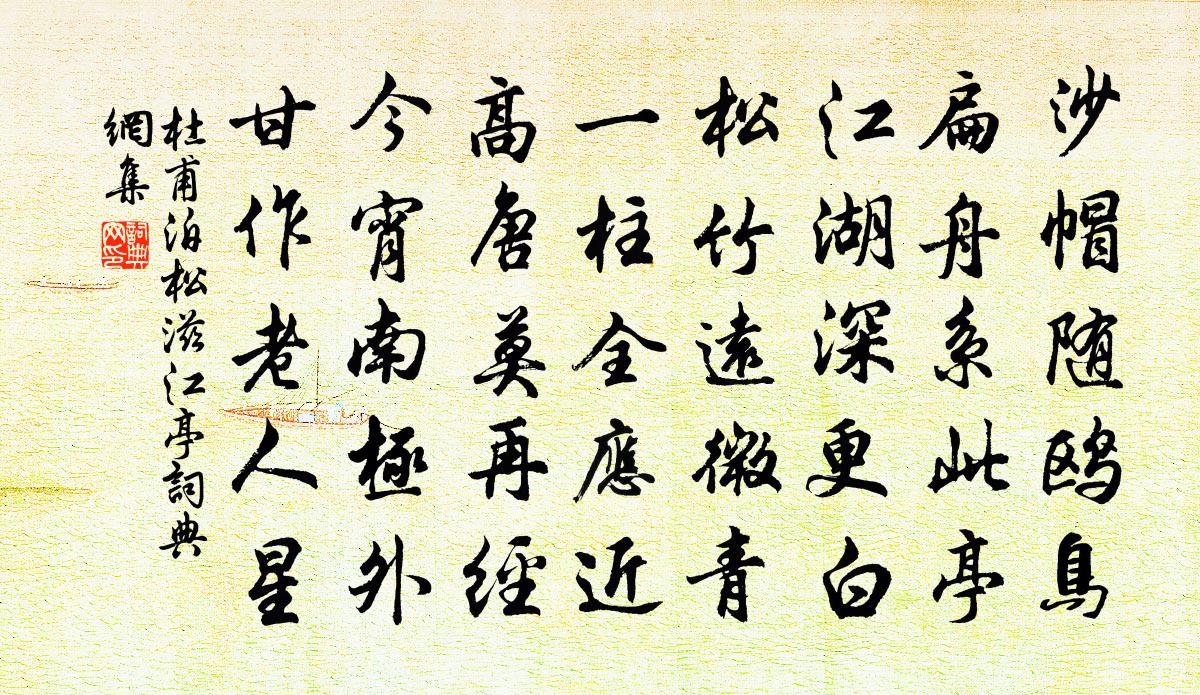 沙帽随鸥鳥
扁舟系此亭
江湖深更白
松竹遠微青
一柱全應近
高唐莫再經
今宵南極外
甘作老人星
杜甫泊松滋江亭詞典
網集
詞典
网印